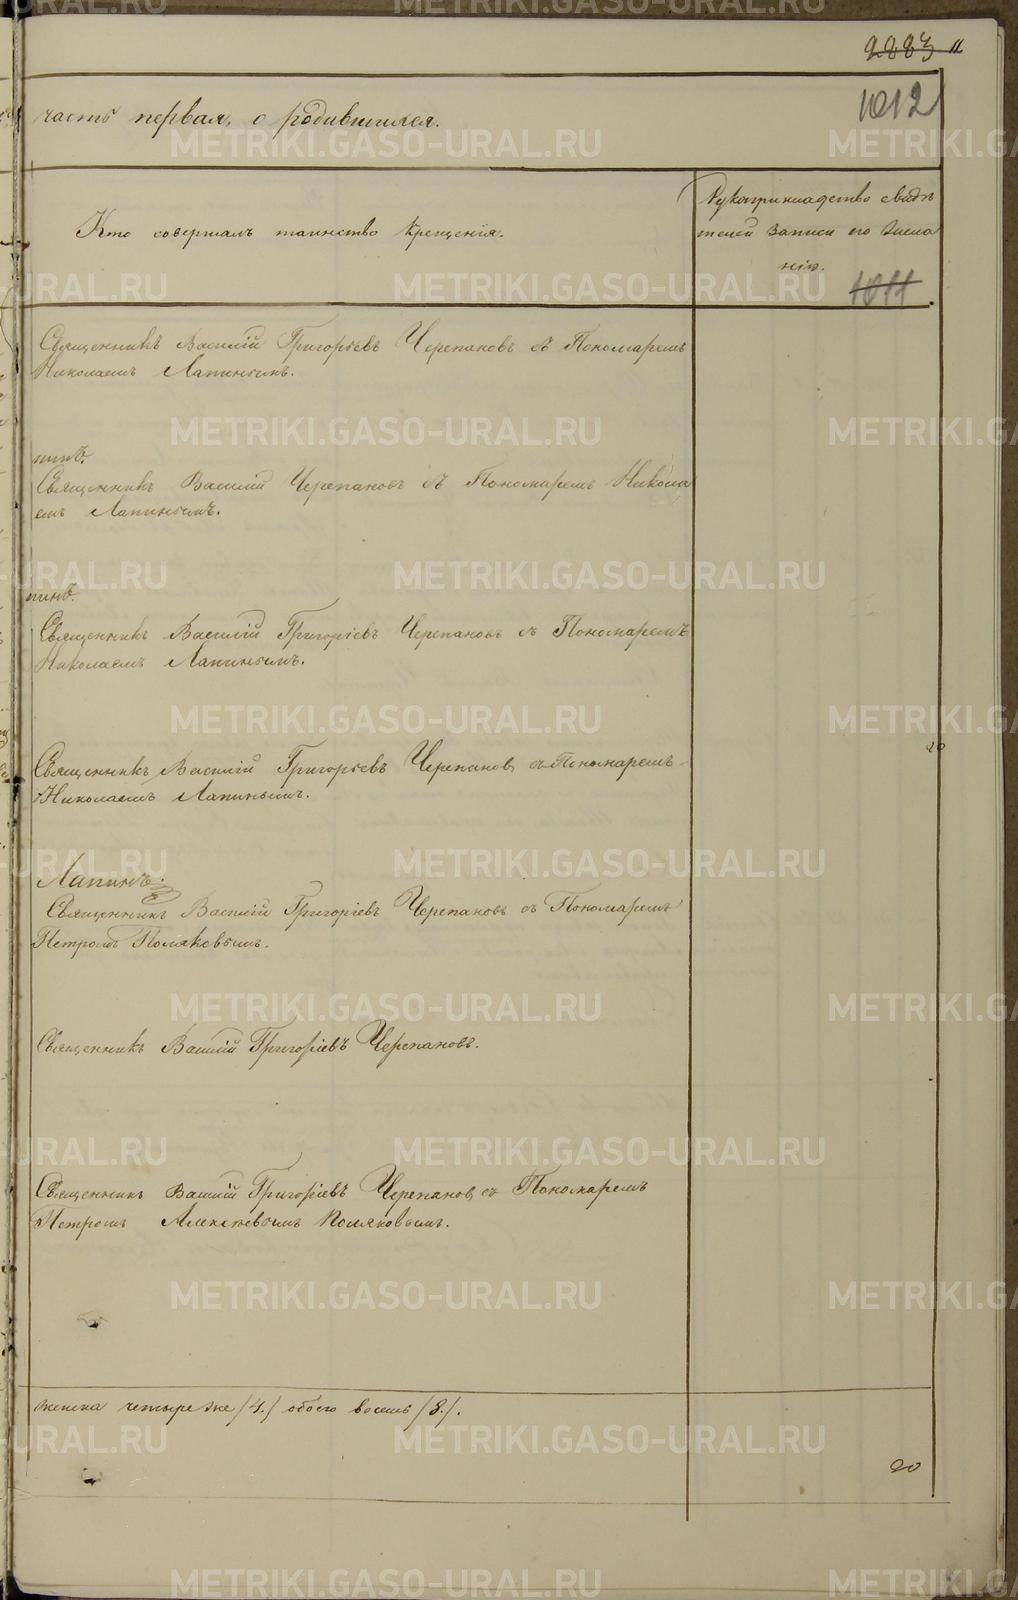 2283 11
1012
часть первая, о родившихся.
Кто совершалъ таинство крещенія.
Рукоприкладство свидѣ
телей записи по желá
нію.
1011
Священникъ Василій Григорьевъ Черепановъ съ Пономаремъ
Николаемъ Лапинымъ.
пинъ.
Священникъ Василій Черепановъ съ Пономаремъ Никола
емъ Лапинымъ.
пинъ.
Священникъ Василій Григоріевъ Черепановъ съ Пономаремъ
Николаемъ Лапинымъ.
Священникъ Василій Григорьевъ Черепановъ съ Пономаремъ
Николаемъ Лапинымъ.
Лапинъ.
Священникъ Василій Григоріевъ Черепановъ съ Пономаремъ
Петромъ Поляковымъ.
Священникъ Василій Григоріевъ Черепановъ.
Священникъ Василій Григоріевъ Черепановъ съ Пономаремъ
Петромъ Алексѣевымъ Поляковымъ.
женска четыре же /4./ обоего восемь /8./.
20
METRIKI.GASO-URAL.RU